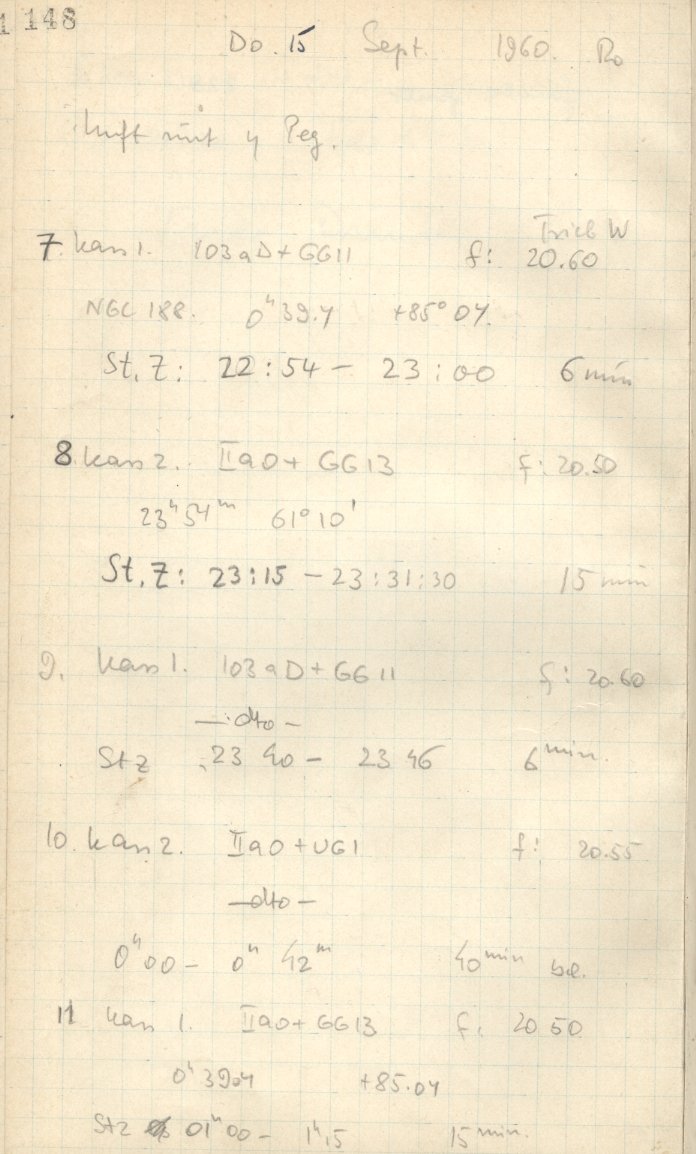 148
Do. 15 Sept. 1960. Ro
Luft mit η Peg.
Trieb W
7. Kass 1. 103aD + GG11 f: 20.60
NGC 188. 0ʰ 39.4 +85° 04.
St. Z: 22:54 – 23:00 6 min
8. Kass 2. IIaO + GG13 f: 20.50
23ʰ 54ᵐ 61° 10'
St. Z: 23:15 – 23:31:30 15 min
9. Kass 1. 103aD + GG11 f: 20.60
– dto –
St Z 23 40 – 23 46 6 min.
10. Kass 2. IIaO + UG1 f: 20.55
– dto –
0ʰ 00 – 0ʰ 42ᵐ 40 min
11 Kass 1. IIaO + GG13 f: 20 50
0ʰ 39.4 +85.04
St Z 01ʰ 00 – 1ʰ 15 15 min.